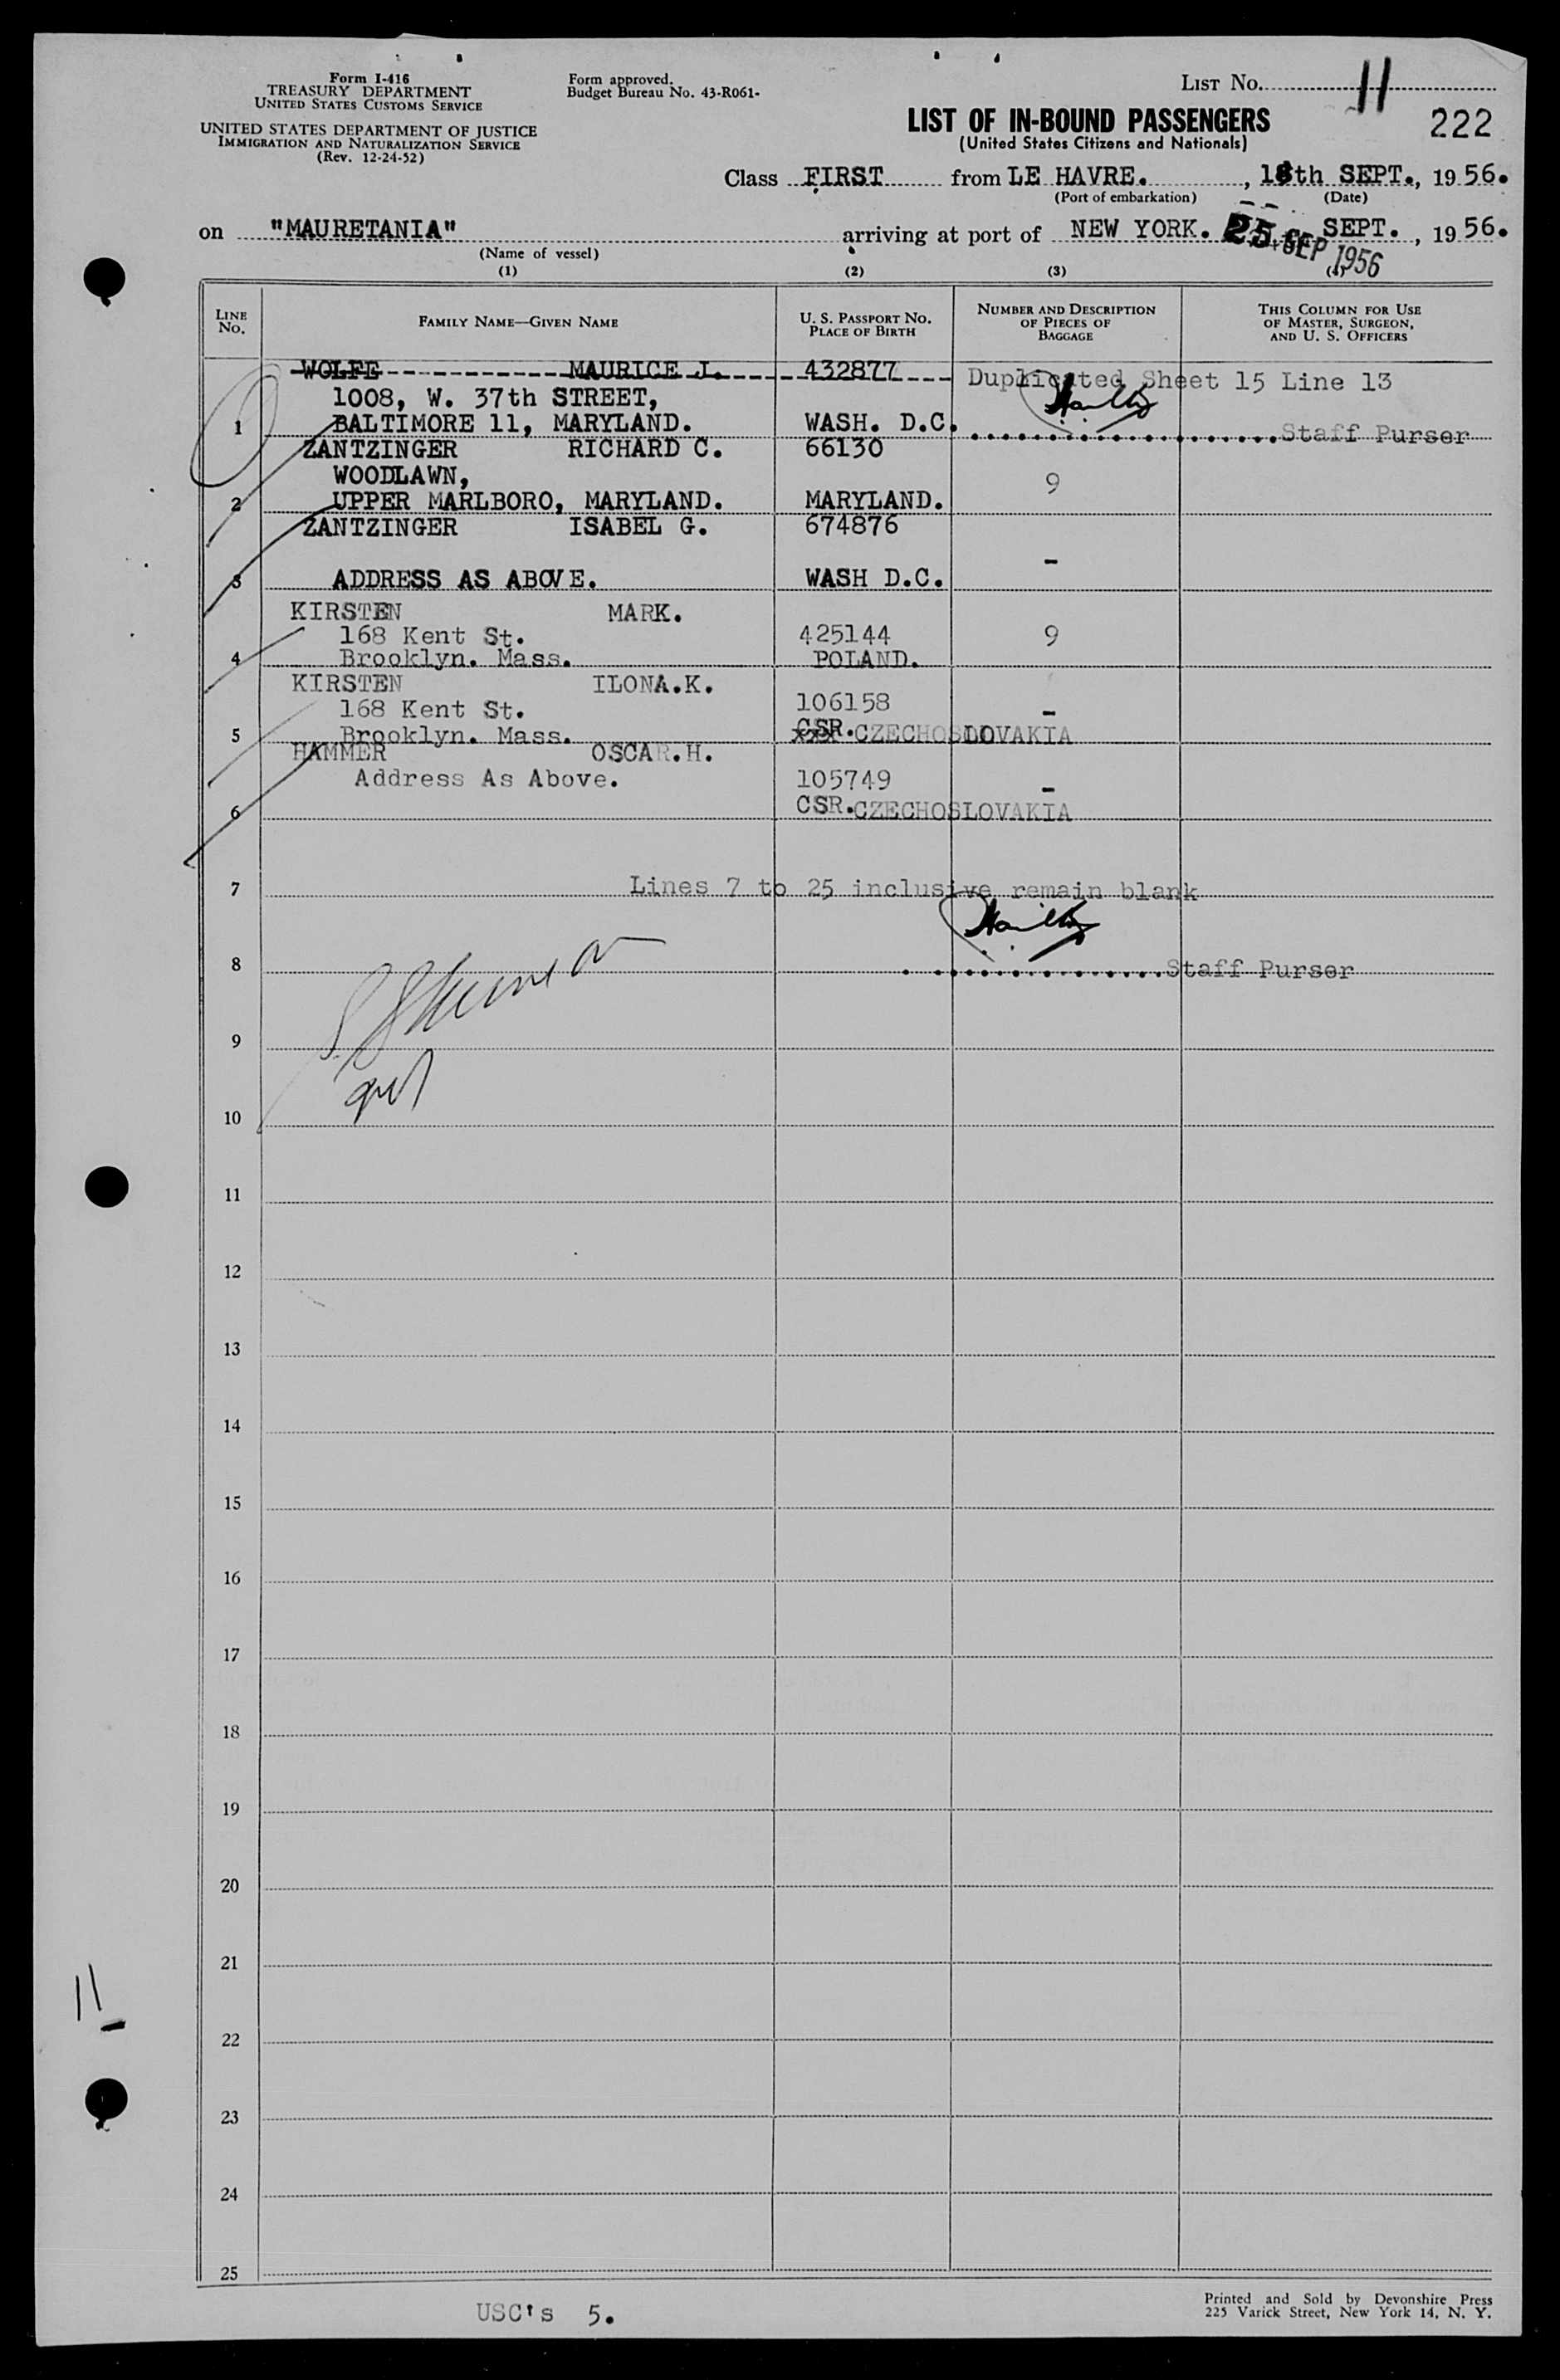 Form I-416
TREASURY DEPARTMENT
UNITED STATES CUSTOMS SERVICE
UNITED STATES DEPARTMENT OF JUSTICE
IMMIGRATION AND NATURALIZATION SERVICE
(Rev. 12-24-52)
Form approved.
Budget Bureau No. 43-R061-
LIST No. 11
LIST OF IN-BOUND PASSENGERS
222
(United States Citizens and Nationals)
Class FIRST from LE HAVRE. , 18th SEPT., 1956.
(Port of embarkation) (Date)
on "MAURETANIA" arriving at port of NEW YORK. SEPT. , 1956.
25 SEP 1956
(Name of vessel)
(1) (2) (3) (4)
LINE No. FAMILY NAME—GIVEN NAME U. S. PASSPORT NO. PLACE OF BIRTH NUMBER AND DESCRIPTION OF PIECES OF BAGGAGE THIS COLUMN FOR USE OF MASTER, SURGEON, AND U. S. OFFICERS
WOLFE MAURICE J. 432877 Duplicated Sheet 15 Line 13
1008, W. 37th STREET,
1 BALTIMORE 11, MARYLAND. WASH. D.C. Staff Purser
ZANTZINGER RICHARD C. 66130
WOODLAWN, 9
2 UPPER MARLBORO, MARYLAND. MARYLAND.
ZANTZINGER ISABEL G. 674876
-
3 ADDRESS AS ABOVE. WASH D.C.
KIRSTEN MARK.
168 Kent St. 425144 9
4 Brooklyn. Mass. POLAND.
KIRSTEN ILONA.K.
168 Kent St. 106158 -
5 Brooklyn. Mass. CSR. CZECHOSLOVAKIA
HAMMER OSCAR.H.
Address As Above. 105749 -
6 CSR. CZECHOSLOVAKIA
7 Lines 7 to 25 inclusive remain blank
8 Staff Purser
9
10
11
12
13
14
15
16
17
18
19
20
21
11
22
23
24
25
USC's 5.
Printed and Sold by Devonshire Press
225 Varick Street, New York 14, N. Y.